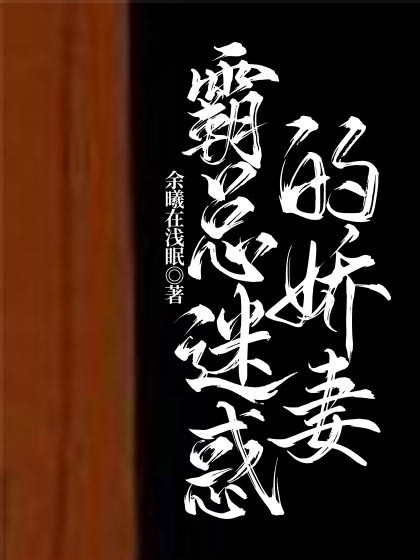 霸总迷惑
的娇妻
余曦在浅眠◎著